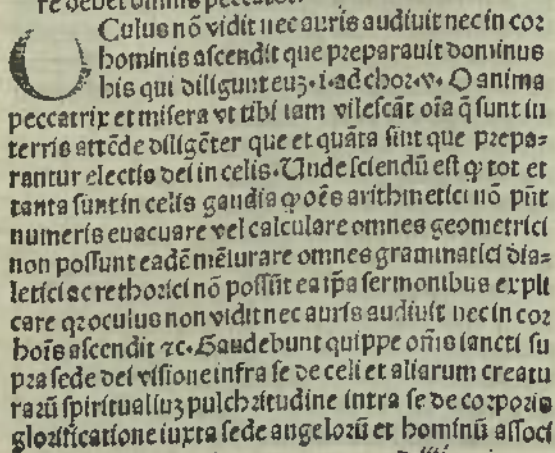 re debet omnis peccator.
OCulus nō vidit nec auris audiuit nec in cor
hominis ascendit que preparauit dominus
his qui diligunt euꝫ.i.ad chor.v. O anima
peccatrix et misera vt tibi iam vilescāt oīa q̄ sunt in
terris attēde diligēter que et quāta sint que prepa⸗
rantur electis dei in celis. Unde sciendū est ꝙ tot et
tanta sunt in celis gaudia ꝙ oēs arithmetici nō pn̄t
numeris euacuare vel calculare omnes geometrici
non possunt eadē mēsurare omnes grammatici dia⸗
letici ac rethorici nō possūt ea ip̄a sermonibus expli
care qꝛ oculus non vidit nec auris audiuit nec in cor
hoīs ascendit ⁊c. Gaudebunt quippe om̄s sancti su
pra se de dei visione infra se de celi et aliarum creatu
rarū spiritualiuꝫ pulchritudine intra se de corporis
glorificatione iuxta se de angelorū et hominū associ